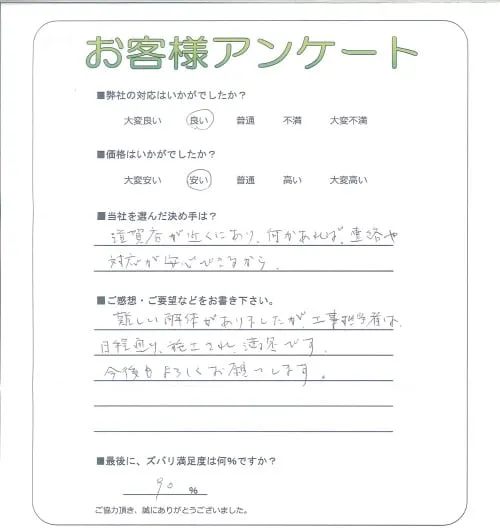 お客様アンケート
■弊社の対応はいかがでしたか？
大変良い 良い 普通 不満 大変不満
■価格はいかがでしたか？
大変安い 安い 普通 高い 大変高い
■当社を選んだ決め手は？
遠賀店が近くにあり、何かあれば、連絡や
対応が安心できるから。
■ご感想・ご要望などをお書き下さい。
難しい解体がありましたが、工事担当者は、
日程通り、施工され、満足です。
今後もよろしくお願いします。
■最後に、ズバリ満足度は何%ですか？
90 %
ご協力頂き、誠にありがとうございました。